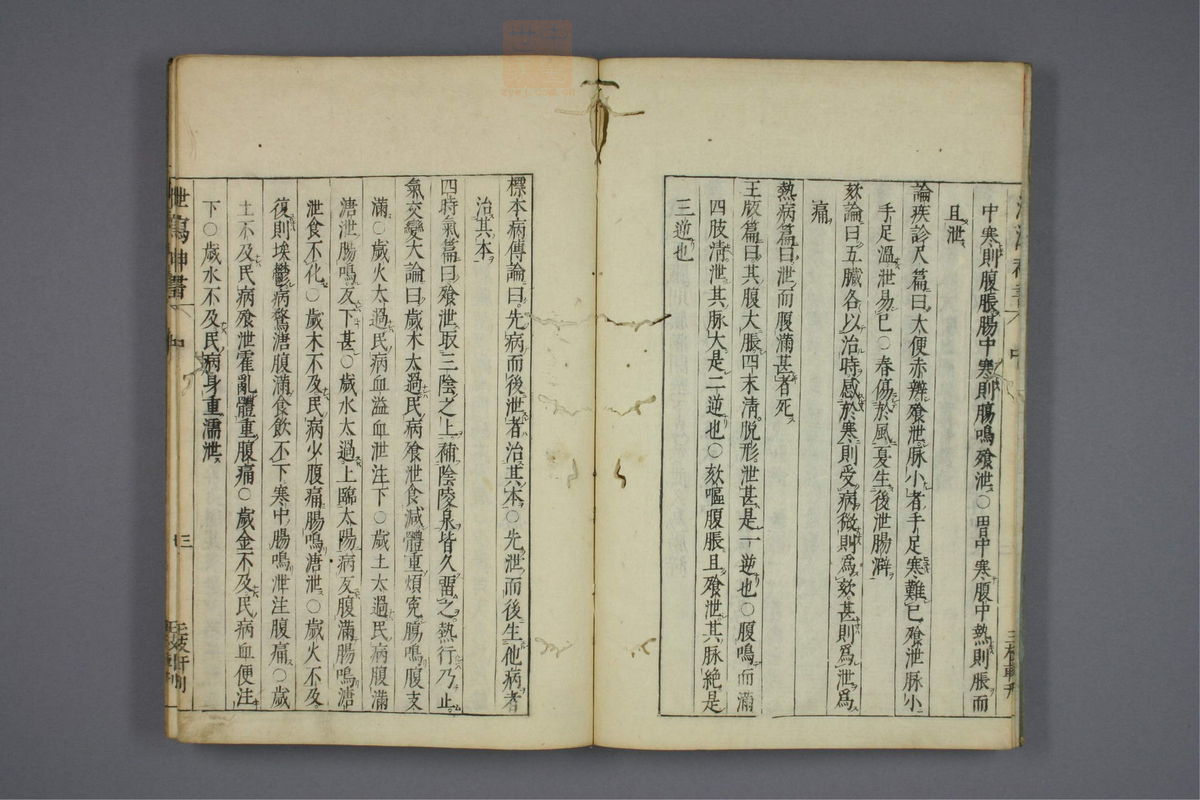 中寒則腹脹腸中寒則腸鳴飧泄○胃中寒腹中熱則脹而
且泄
論疾診尺篇曰大便赤瓣飧泄脉小者手足寒難已飧泄脉小
手足溫泄易已○春傷於風夏生後泄腸澼
欬論曰五臟各以治時感於寒則受病微則爲欬甚則爲泄爲
痛
熱病篇曰泄而腹滿甚者死
王版篇曰其腹大脹四末清脫形泄甚是一逆也○腹鳴而滿
四肢清泄其脉大是二逆也○欬嘔腹脹且飧泄其脉絶是
三逆也
標本病傳論曰先病而後泄者治其本○先泄而後生他病者
治其本
四時氣篇曰飧泄取三陰之上補陰陵泉皆久留之熱行乃止
氣交變大論曰歲木太過民病飧泄食減體重煩寃腸鳴腹支
滿○歲火太過民病血溢血泄注下○歲土太過民病腹滿
溏泄腸鳴反下甚○歲水太過上臨太陽病反腹滿腸鳴溏
泄食不化○歲木不及民病少腹痛腸鳴溏泄○歲火不及
復則埃鬱病鶩溏腹滿食飲不下寒中腸鳴泄注腹痛○歲
土不及民病飧泄霍亂體重腹痛○歲金不及民病血便注
下○歲水不及民病身重濡泄
泄瀉神書
中
三